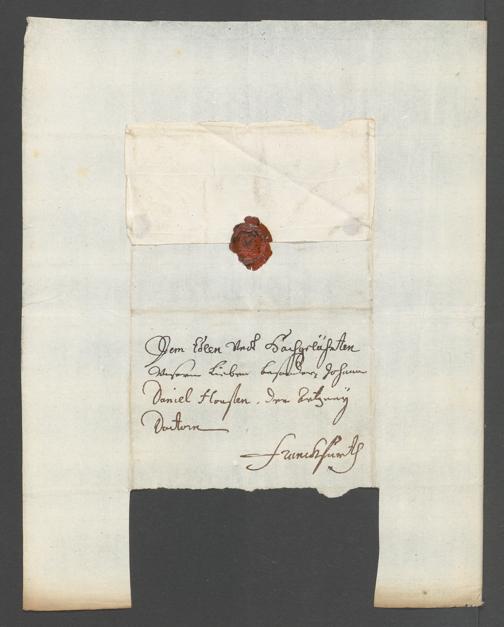 Dem Edlen Undt Hochgelährten
Unserm Lieben besonder, Johann
Daniel Horsten, der Artzney
Doctorn
Franckfurth